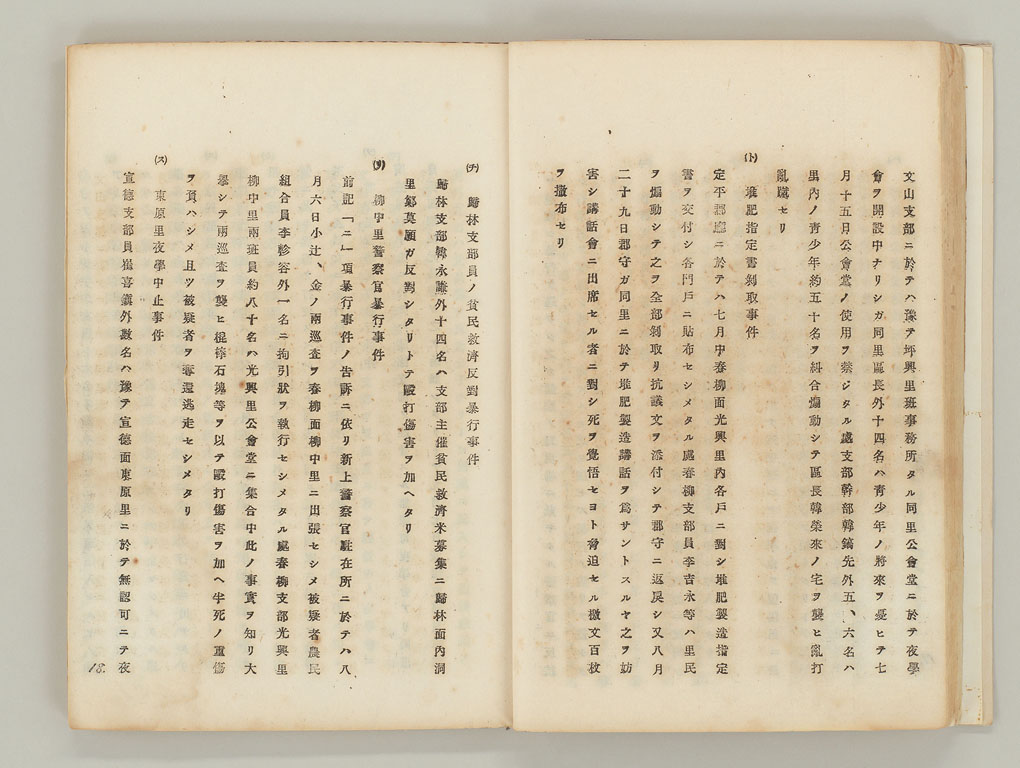 文山支部ニ於テハ豫テ坪興里班事務所タル同里公會堂ニ於テ夜學
會ヲ開設中ナリシガ同里區長外十四名ハ青少年ノ將來ヲ憂ヒテ七
月十五月公會堂ノ使用ヲ禁ジタル處支部幹部韓鎬先外五、六名ハ
里內ノ青少年約五十名ヲ糾合煽動シテ區長韓榮來ノ宅ヲ襲ヒ亂打
亂蹴セリ
(ト) 堆肥指定書剝取事件
定平郡廳ニ於テハ七月中春柳面光興里內各戶ニ對シ堆肥製造指定
書ヲ交付シ各門戶ニ貼布セシメタル處春柳支部員李吉永等ハ里民
ヲ煽動シテ之ヲ全部剝取リ抗議文ヲ添付シテ郡守ニ返戾シ又八月
二十九日郡守ガ同里ニ於テ堆肥製造講話ヲ爲サントスルヤ之ヲ妨
害シ講話會ニ出席セル者ニ對シ死ヲ覺悟セヨト脅迫セル檄文百枚
ヲ撒布セリ
(チ) 歸林支部員ノ貧民救濟反對暴行事件
歸林支部韓永謙外十四名ハ支部主催貧民救濟米募集ニ歸林面內洞
里鄒莫願ガ反對シタリトテ毆打傷害ヲ加ヘタリ
(リ) 柳中里警察官暴行事件
前記「ニ」項暴行事件ノ告訴ニ依リ新上警察官駐在所ニ於テハ八
月六日小辻、金ノ兩巡査ヲ春柳面柳中里ニ出張セシメ被疑者農民
組合員李 容外一名ニ拘引狀ヲ執行セシメタル處春柳支部光興里
柳中里兩班員約八十名ハ光興里公會堂ニ集合中此ノ事實ヲ知リ大
擧シテ兩巡査ヲ襲ヒ棍棒石塊等ヲ以テ毆打傷害ヲ加ヘ半死ノ重傷
ヲ負ハシメ且ツ被疑者ヲ奪還逃走セシメタリ
(ス) 東原里夜學中止事件
宣德支部員崔喜鎭外數名ハ豫テ宣德面東原里ニ於テ無認可ニテ夜
18.